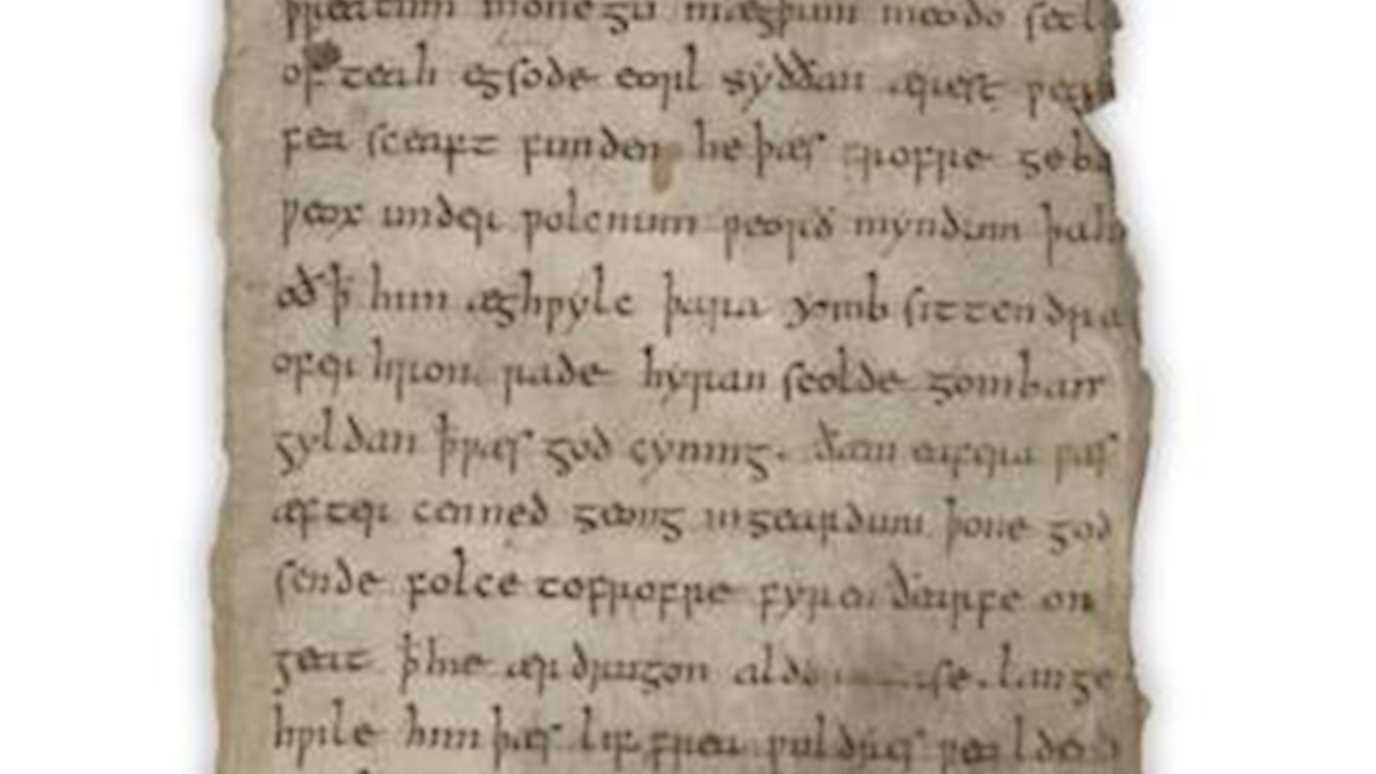 þreatum monegū mægþum meodo setl
of teah egsode eorl syððan ærest ƿear
fea sceaft funden he þæs frofre geba
ƿeox under ƿolcnum ƿeorð myndum þah
oð ꝥ him æghƿylc þara ymb sittendra
ofer hron rade hyran scolde gomban
gyldan ꝥ ƿæs god cyning. ðæm eafera ƿæs
æfter cenned geong in geardum þone god
sende folce to frofre fyren ðearfe on
geat ꝥ hie ær drugon lange
hƿile him þæs lif frea ƿuldres ƿealdend